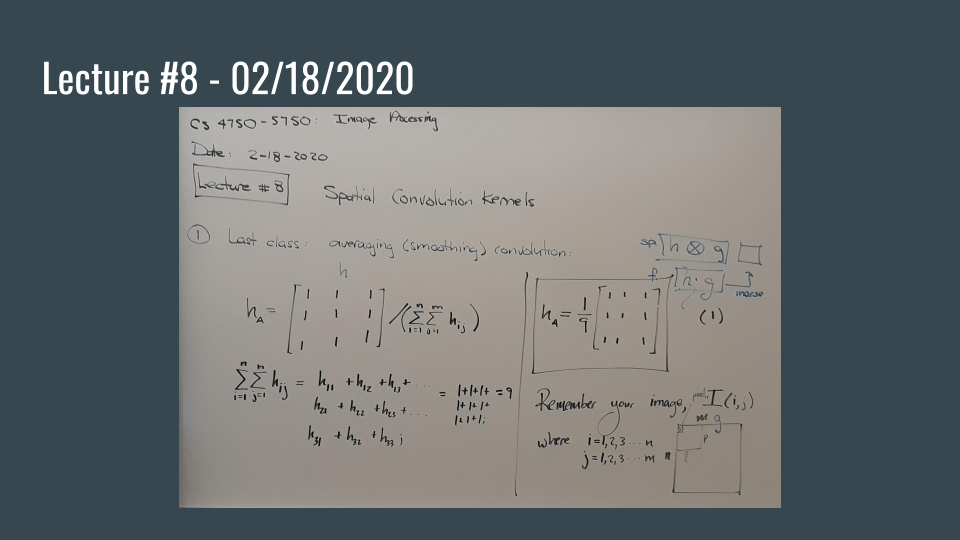 Lecture #8 - 02/18/2020
CS 4750-5750: Image Processing
Date: 2-18-2020
Lecture # 8
Spatial Convolution Kernels
① Last class: averaging (smoothing) convolution:
h
h_A = [1 1 1
1 1 1
1 1 1] / (Σ_{i=1}^{n} Σ_{j=1}^{m} h_ij)
Σ_{i=1}^{n} Σ_{j=1}^{m} h_ij = h_11 + h_12 + h_13 + ... = 1+1+1+ = 9
h_21 + h_22 + h_23 + ... 1+1+1+
h_31 + h_32 + h_33 ; 1+1+1;
sp h ⊗ g
f. h · g
inverse
h_A = 1/9 [1 1 1
1 1 1
1 1 1]
(1)
Remember your image, I(i,j)
where i=1,2,3 ... n
j=1,2,3 ... m
m g
n
p